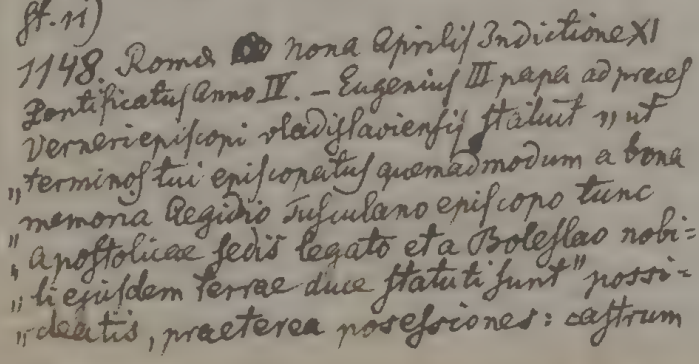 St. 11)
1148. Romæ nona Aprilis Indictione XI
Pontificatus Anno IV. – Eugenius III papa ad preces
Verneri episcopi vladislaviensis statuit „ut
„terminos tui episcopatus quemadmodum a bona
„memoria Aegidio Tusculano episcopo tunc
„apostolicae sedis legato et a Boleslao nobi=
„li ejusdem terrae duce statuti sunt" possi=
„deatis, praeterea posessiones: castrum